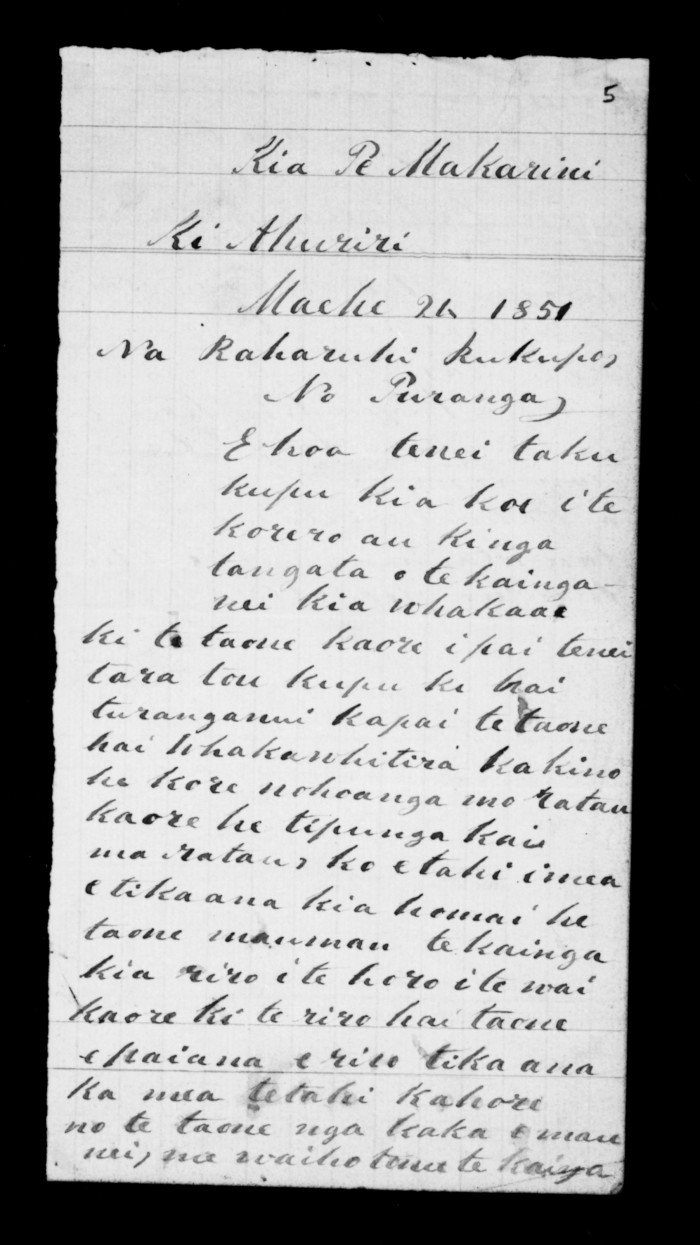 5
Kia Pe Makarini
Ki Ahuriri
Maehe 26 1851
Na Raharuhi Rukupo,
No Puranga,
E hoa tenei taku
kupu kia koe i te
korero au kinga
tangata o te kainga
nei kia whakaae
ki te taone kaore i pai tenei
tara tou kupu ki hai
turanganui kapai te taone
hai Whakawhitira kakino
he kore nohoanga mo ratau
kaore he tipunga kai
ma ratau, ko etahi i mea
etika ana kia homai he
taone maumau te kainga
kia riro i te horo i te wai
kaore ki te riro hai taone
e pai ana e riro tika ana
ka mea tetahi kahore
no te taone nga kaka e mau
nei, me waiho tonu te kainga